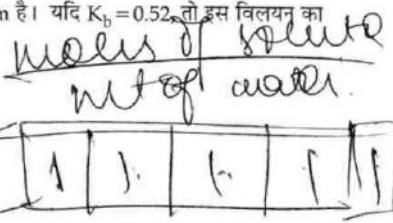 n है। यदि K_b = 0.52, तो इस विलयन का
moles of solute
wt of water.